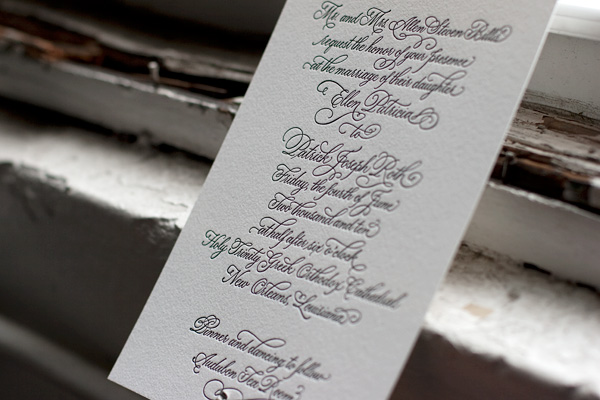 Mr. and Mrs. Allen Steven Ballis
request the honor of your presence
at the marriage of their daughter
Ellen Patricia
to
Patrick Joseph Roth
Friday, the fourth of June
Two thousand and ten
at half after six o'clock
Holy Trinity Greek Orthodox Cathedral
New Orleans, Louisiana
Dinner and dancing to follow
Audubon Tea Room